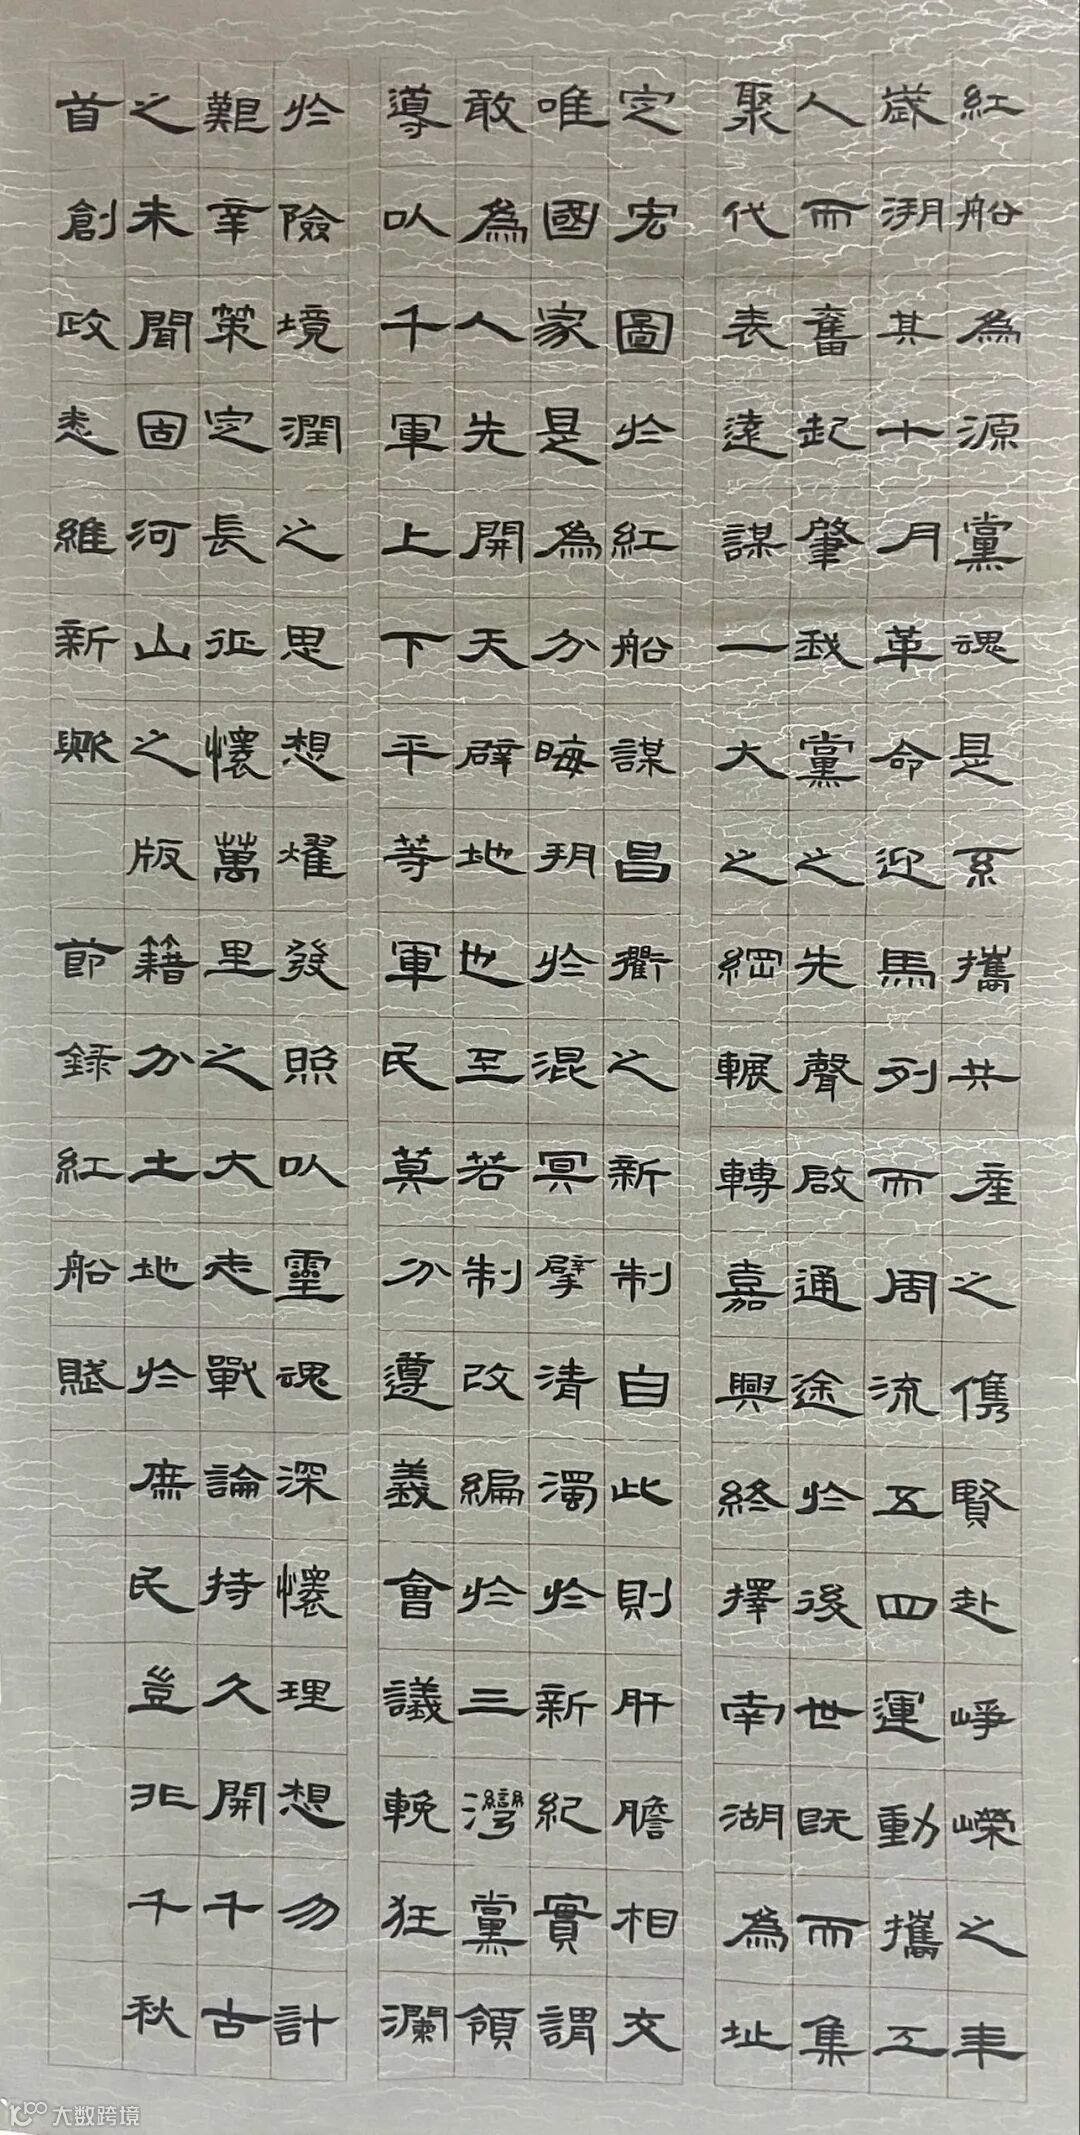 紅船為源黨魂是系攜共産之儁賢赴崢嶸之丰
歲溯其十月革命迎馬列而周流五四運動攜工
人而奮起肇我黨之先聲啟通途於後世既而集
聚代表遠謀一大之綱輾轉嘉興終擇南湖為址
定宏圖於紅船謀昌衢之新制自此則肝膽相交
唯國家是為分晦朔於混冥擘清濁於新紀實謂
敢為人先開天辟地也至若制改編於三灣黨領
導以千軍上下平等軍民莫分遵義會議輓狂瀾
於險境潤之思想燿發照以靈魂深懷理想勿計
艱辛策定長征懷萬里之大志戰論持久開千古
之未聞固河山之版籍分土地於庶民豈非千秋
首創政悉維新歟 節錄紅船賦
大数跨境